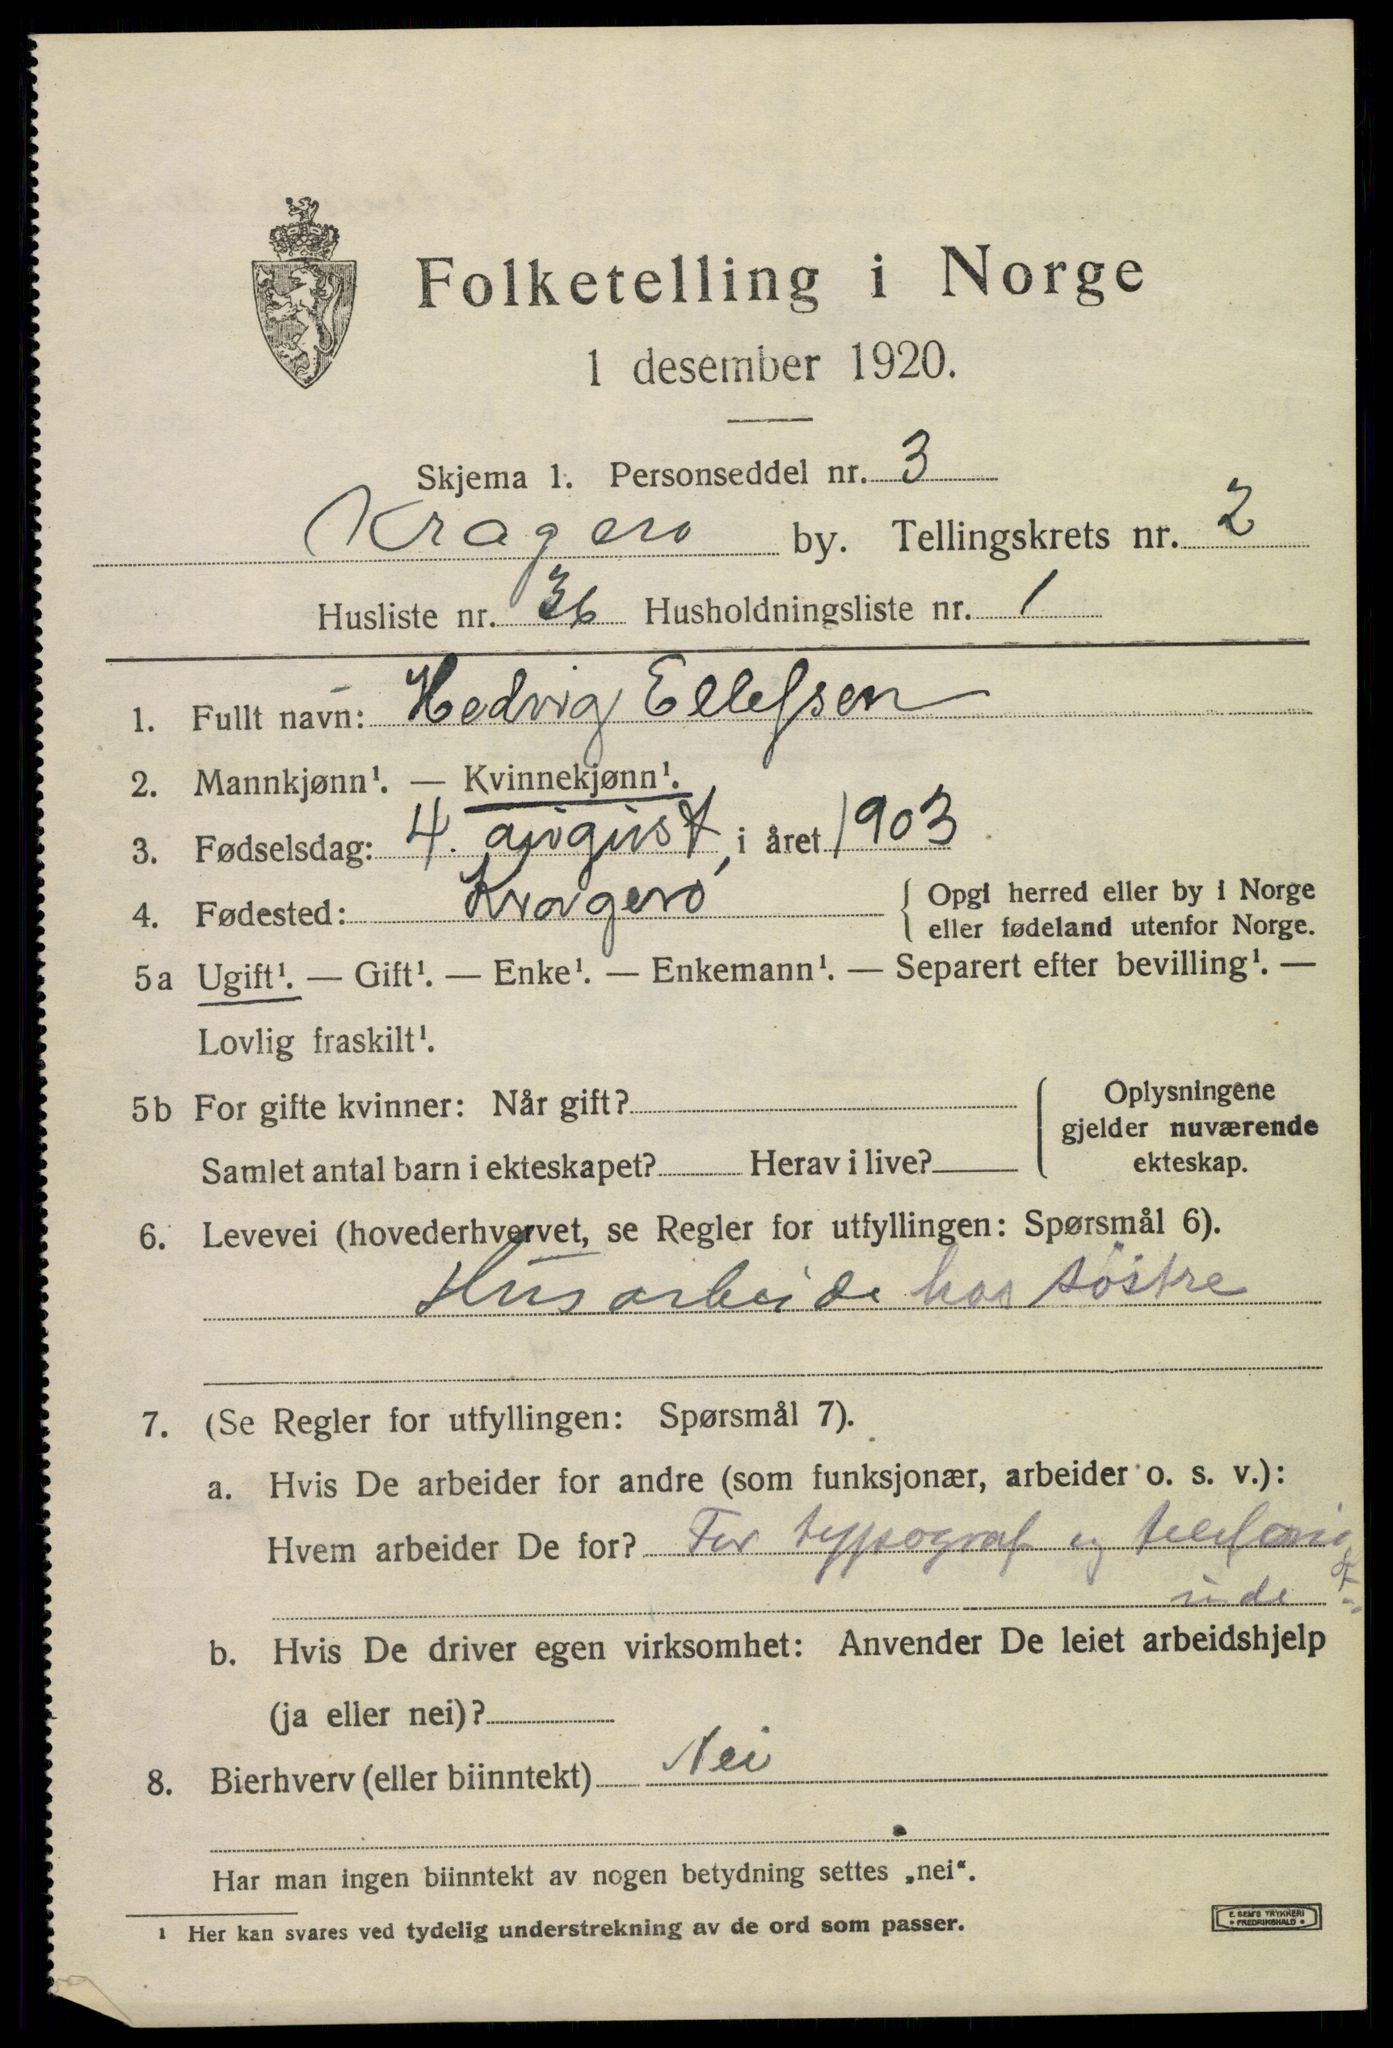 Folketelling i Norge
1 desember 1920.
Skjema 1. Personseddel nr. 3
Kragerø by. Tellingskrets nr. 2
Husliste nr. 36 Husholdningsliste nr. 1
1. Fullt navn: Hedvig Ellefsen
2. Mannkjønn¹. — Kvinnekjønn¹.
3. Fødselsdag: 4. august, i året 1903
4. Fødested: Kragerø { Opgi herred eller by i Norge
eller fødeland utenfor Norge.
5a Ugift¹. — Gift¹. — Enke¹. — Enkemann¹. — Separert efter bevilling¹. —
Lovlig fraskilt¹.
5b For gifte kvinner: Når gift?
Samlet antal barn i ekteskapet? Herav i live?
Oplysningene
gjelder nuværende
ekteskap.
6. Levevei (hovederhvervet, se Regler for utfyllingen: Spørsmål 6).
Husarbeide hos söstre
7. (Se Regler for utfyllingen: Spørsmål 7).
a. Hvis De arbeider for andre (som funksjonær, arbeider o. s. v.):
Hvem arbeider De for? For typograf og telefonist-
inde
b. Hvis De driver egen virksomhet: Anvender De leiet arbeidshjelp
(ja eller nei)?
8. Bierhverv (eller biinntekt) Nei
Har man ingen biinntekt av nogen betydning settes „nei“.
¹ Her kan svares ved tydelig understrekning av de ord som passer.
E. SEM'S TRYKKERI
FREDRIKSHALD